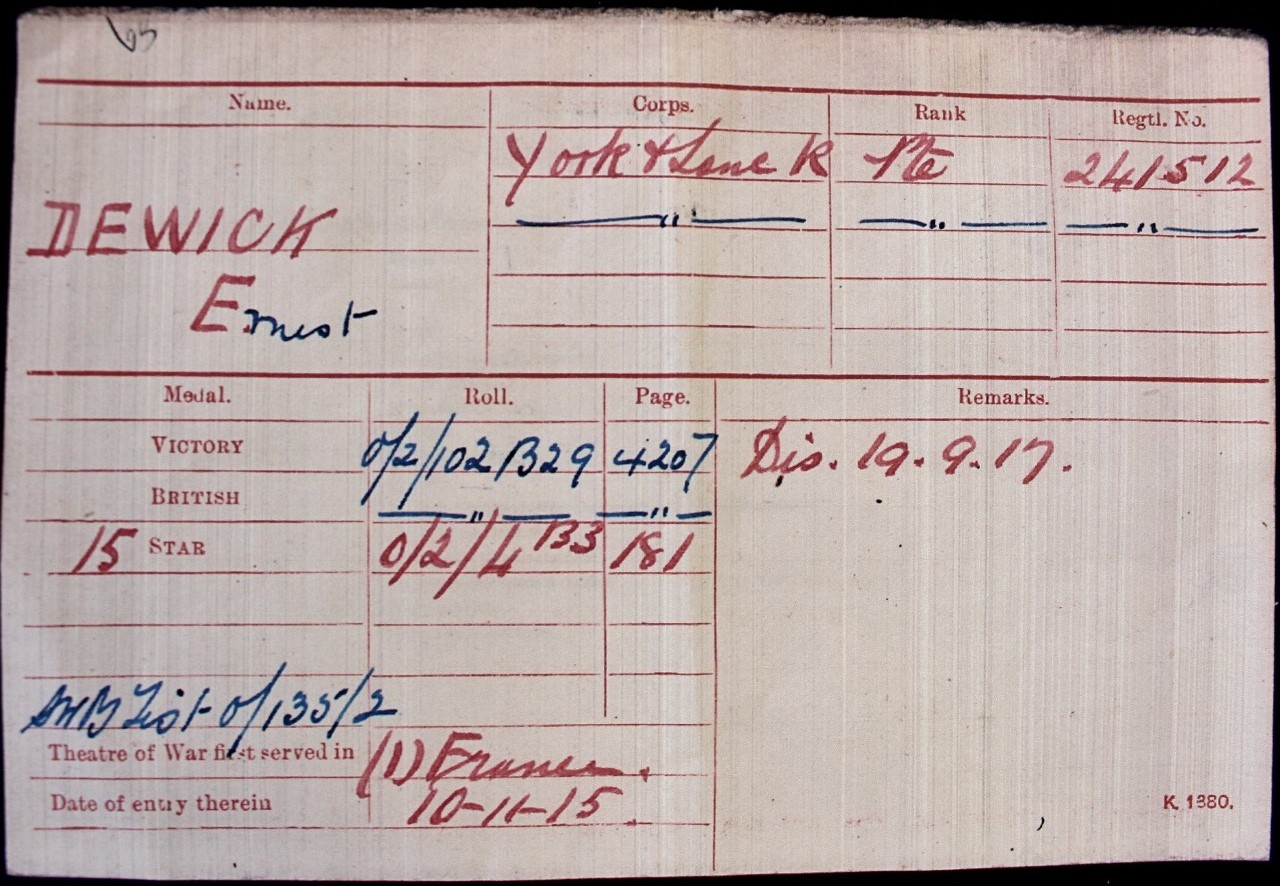 Name. Corps. Rank Regtl. No.
York & Lanc R Pte 241512
DEWICK —"— —"— —"—
Ernest
Medal. Roll. Page. Remarks.
VICTORY 0/2/102 B29 4207 Dis. 19.9.17.
BRITISH —"— —"—
15 STAR 0/2/4 B3 181
SWB List 0/135/2
Theatre of War first served in (1) France.
Date of entry therein 10-11-15.
K. 1380.